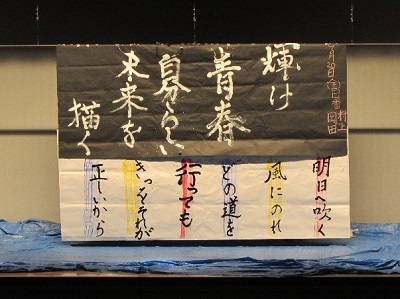 輝け
青春
自分らしい
未来を
描く
村上
岡田
明日へ吹く
風にのれ
どの道を
行っても
きっとそれが
正しいから